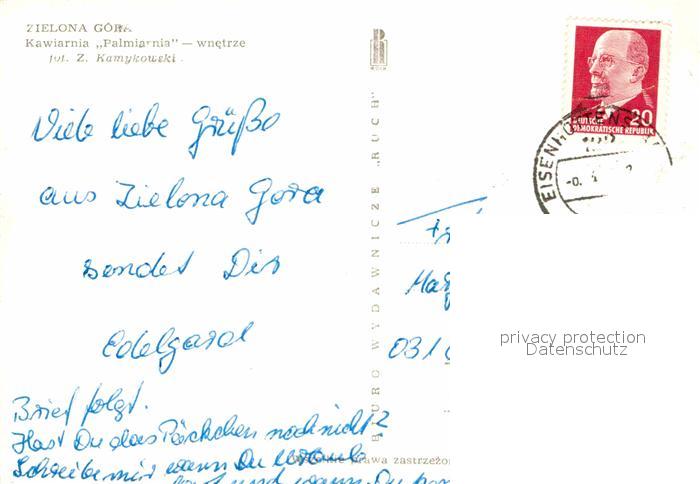 ZIELONA GÓRA
Kawiarnia „Palmiarnia” — wnętrze
fot. Z. Kamykowski
Viele liebe Grüße
aus Zielona Gora
sendet Dir
Edelgard
Brief folgt.
Hast Du das Päckchen noch nicht?
Schreibe mir wann Du Urlaub
und wann Du
BIURO WYDAWNICZE „RUCH”
prawa zastrzeżo
20
DEUTSCHE
DEMOKRATISCHE REPUBLIK
EISENHÜTTENS
031
privacy protection
Datenschutz